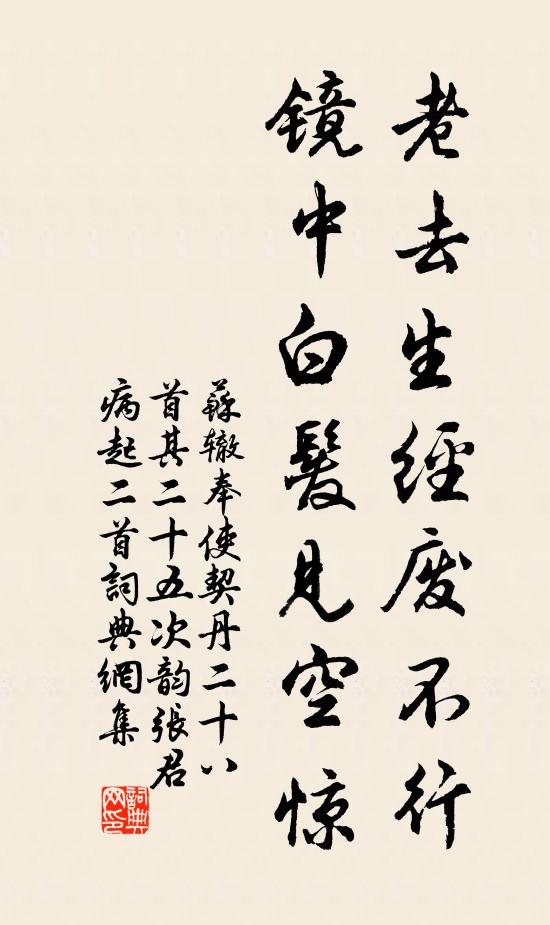 老去生經废不行
镜中白髮見空惊
蘇辙奉使契丹二十八
首其二十五次韵張君
病起二首詞典網集
詞典
网印